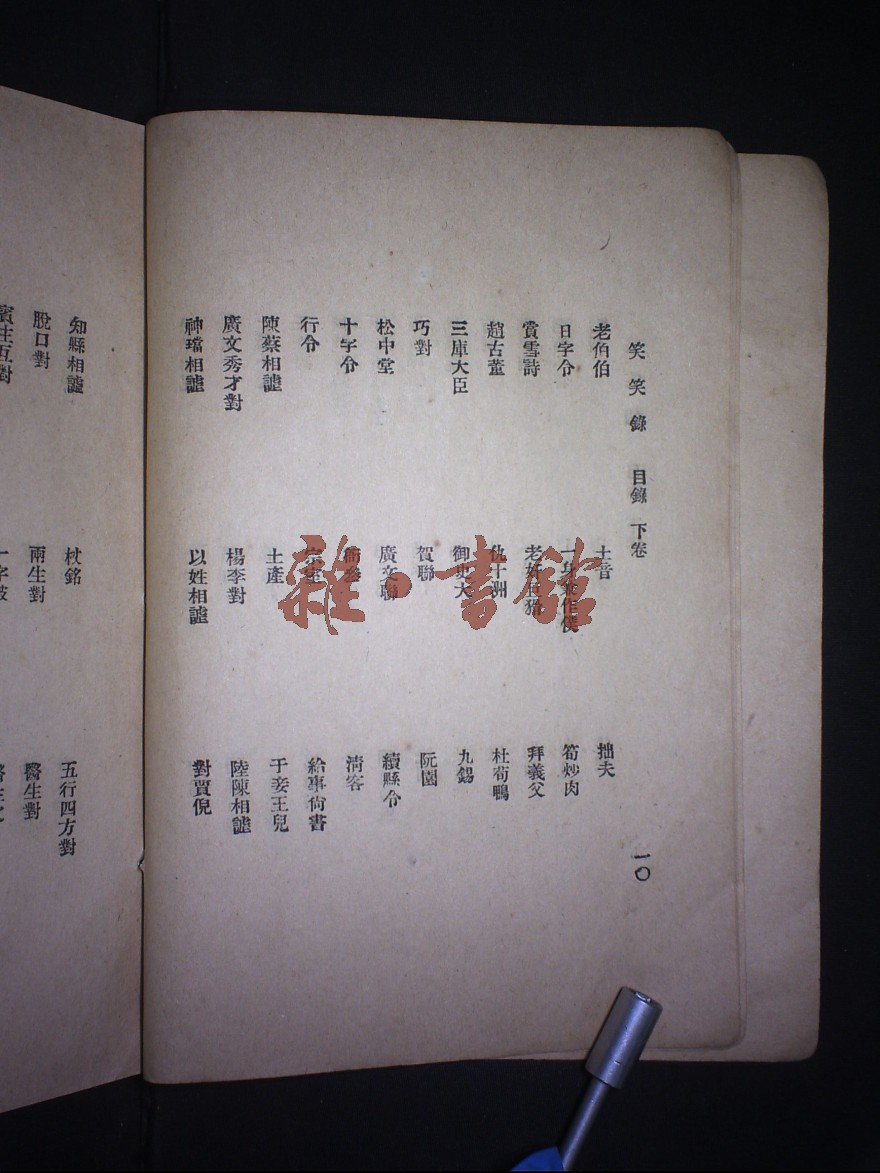 笑笑錄 目錄 下卷 一〇
老伯伯 土音 拙夫
日字令 筍炒肉
賞雪詩 拜義父
趙古董 仇十洲 杜荀鴨
三庫大臣 御史大 九錫
巧對 賀聯 阮園
松中堂 廣文聯 續縣令
十字令 清客
行令 宗室 給事尙書
陳蔡相謔 土產 于妾王兒
廣文秀才對 楊李對 陸陳相謔
神璫相謔 以姓相謔 對賈倪
知縣相謔 杖銘 五行四方對
脫口對 兩生對 醫生對
賓主互對
雜·書館